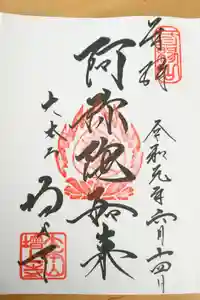 奉拝
令和元年六月十四日
阿弥陀如来
大本山
増上寺